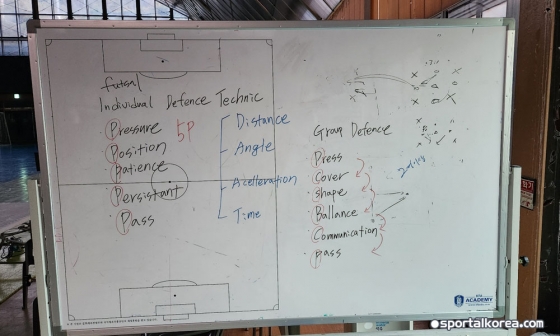 futsal
Individual Defence Technic
Pressure
5P
Position
Patience
Persistant
Pass
Distance
Angle
Acelleration
Time
Group Defence
Press
Cover
shape
Ballance
Communication
pass
ACADEMY
sportalkorea.com